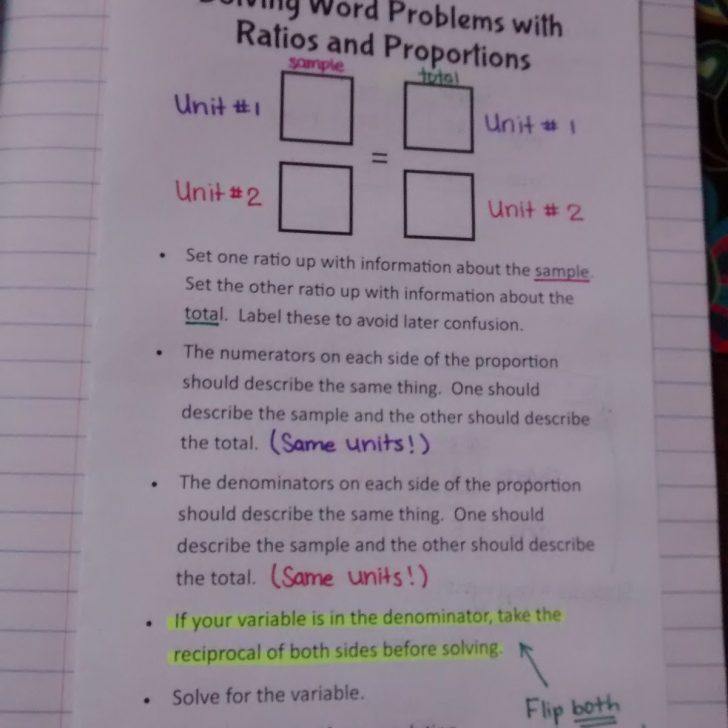 Solving Word Problems with
Ratios and Proportions
sample total
Unit #1 Unit # 1
=
Unit #2 Unit # 2
• Set one ratio up with information about the sample.
Set the other ratio up with information about the
total. Label these to avoid later confusion.
• The numerators on each side of the proportion
should describe the same thing. One should
describe the sample and the other should describe
the total. (Same units!)
• The denominators on each side of the proportion
should describe the same thing. One should
describe the sample and the other should describe
the total. (Same units!)
• If your variable is in the denominator, take the
reciprocal of both sides before solving.
• Solve for the variable.
Flip both